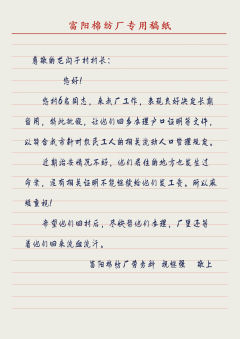 富阳棉纺厂专用稿纸
尊敬的范沟子村村长：
您好！
您村6名同志，来我厂工作，表现良好决定长期
留用，特此批假，让他们回乡办理户口证明等文件，
以符合城市新时农民工人的相关流动人口管理规定。
近期治安情况不好，他们居住的地方也发生过
命案，没有相关证明不能继续给他们发工资。所以麻
烦重视！
希望他们回村后，尽快帮他们办理，厂里还等
着他们回来流血流汗。
富阳棉纺厂劳务科 祝继强 敬上